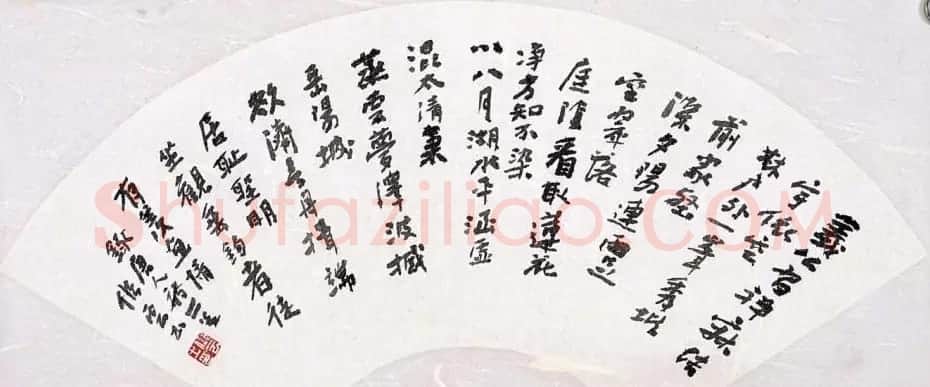 義公習禪寂結
宇依空
林戶外一峯秀階
前衆壑
深夕陽連雨足
空翠落
庭陰看取蓮花
淨方知不染
心八月湖水平涵虛
混太清氣
蒸雲夢澤波撼
岳陽城
欲濟無舟楫端
居恥聖明
坐觀垂釣者徒
有羨魚情
唐人詩二首
錄
Shufaziliao.COM